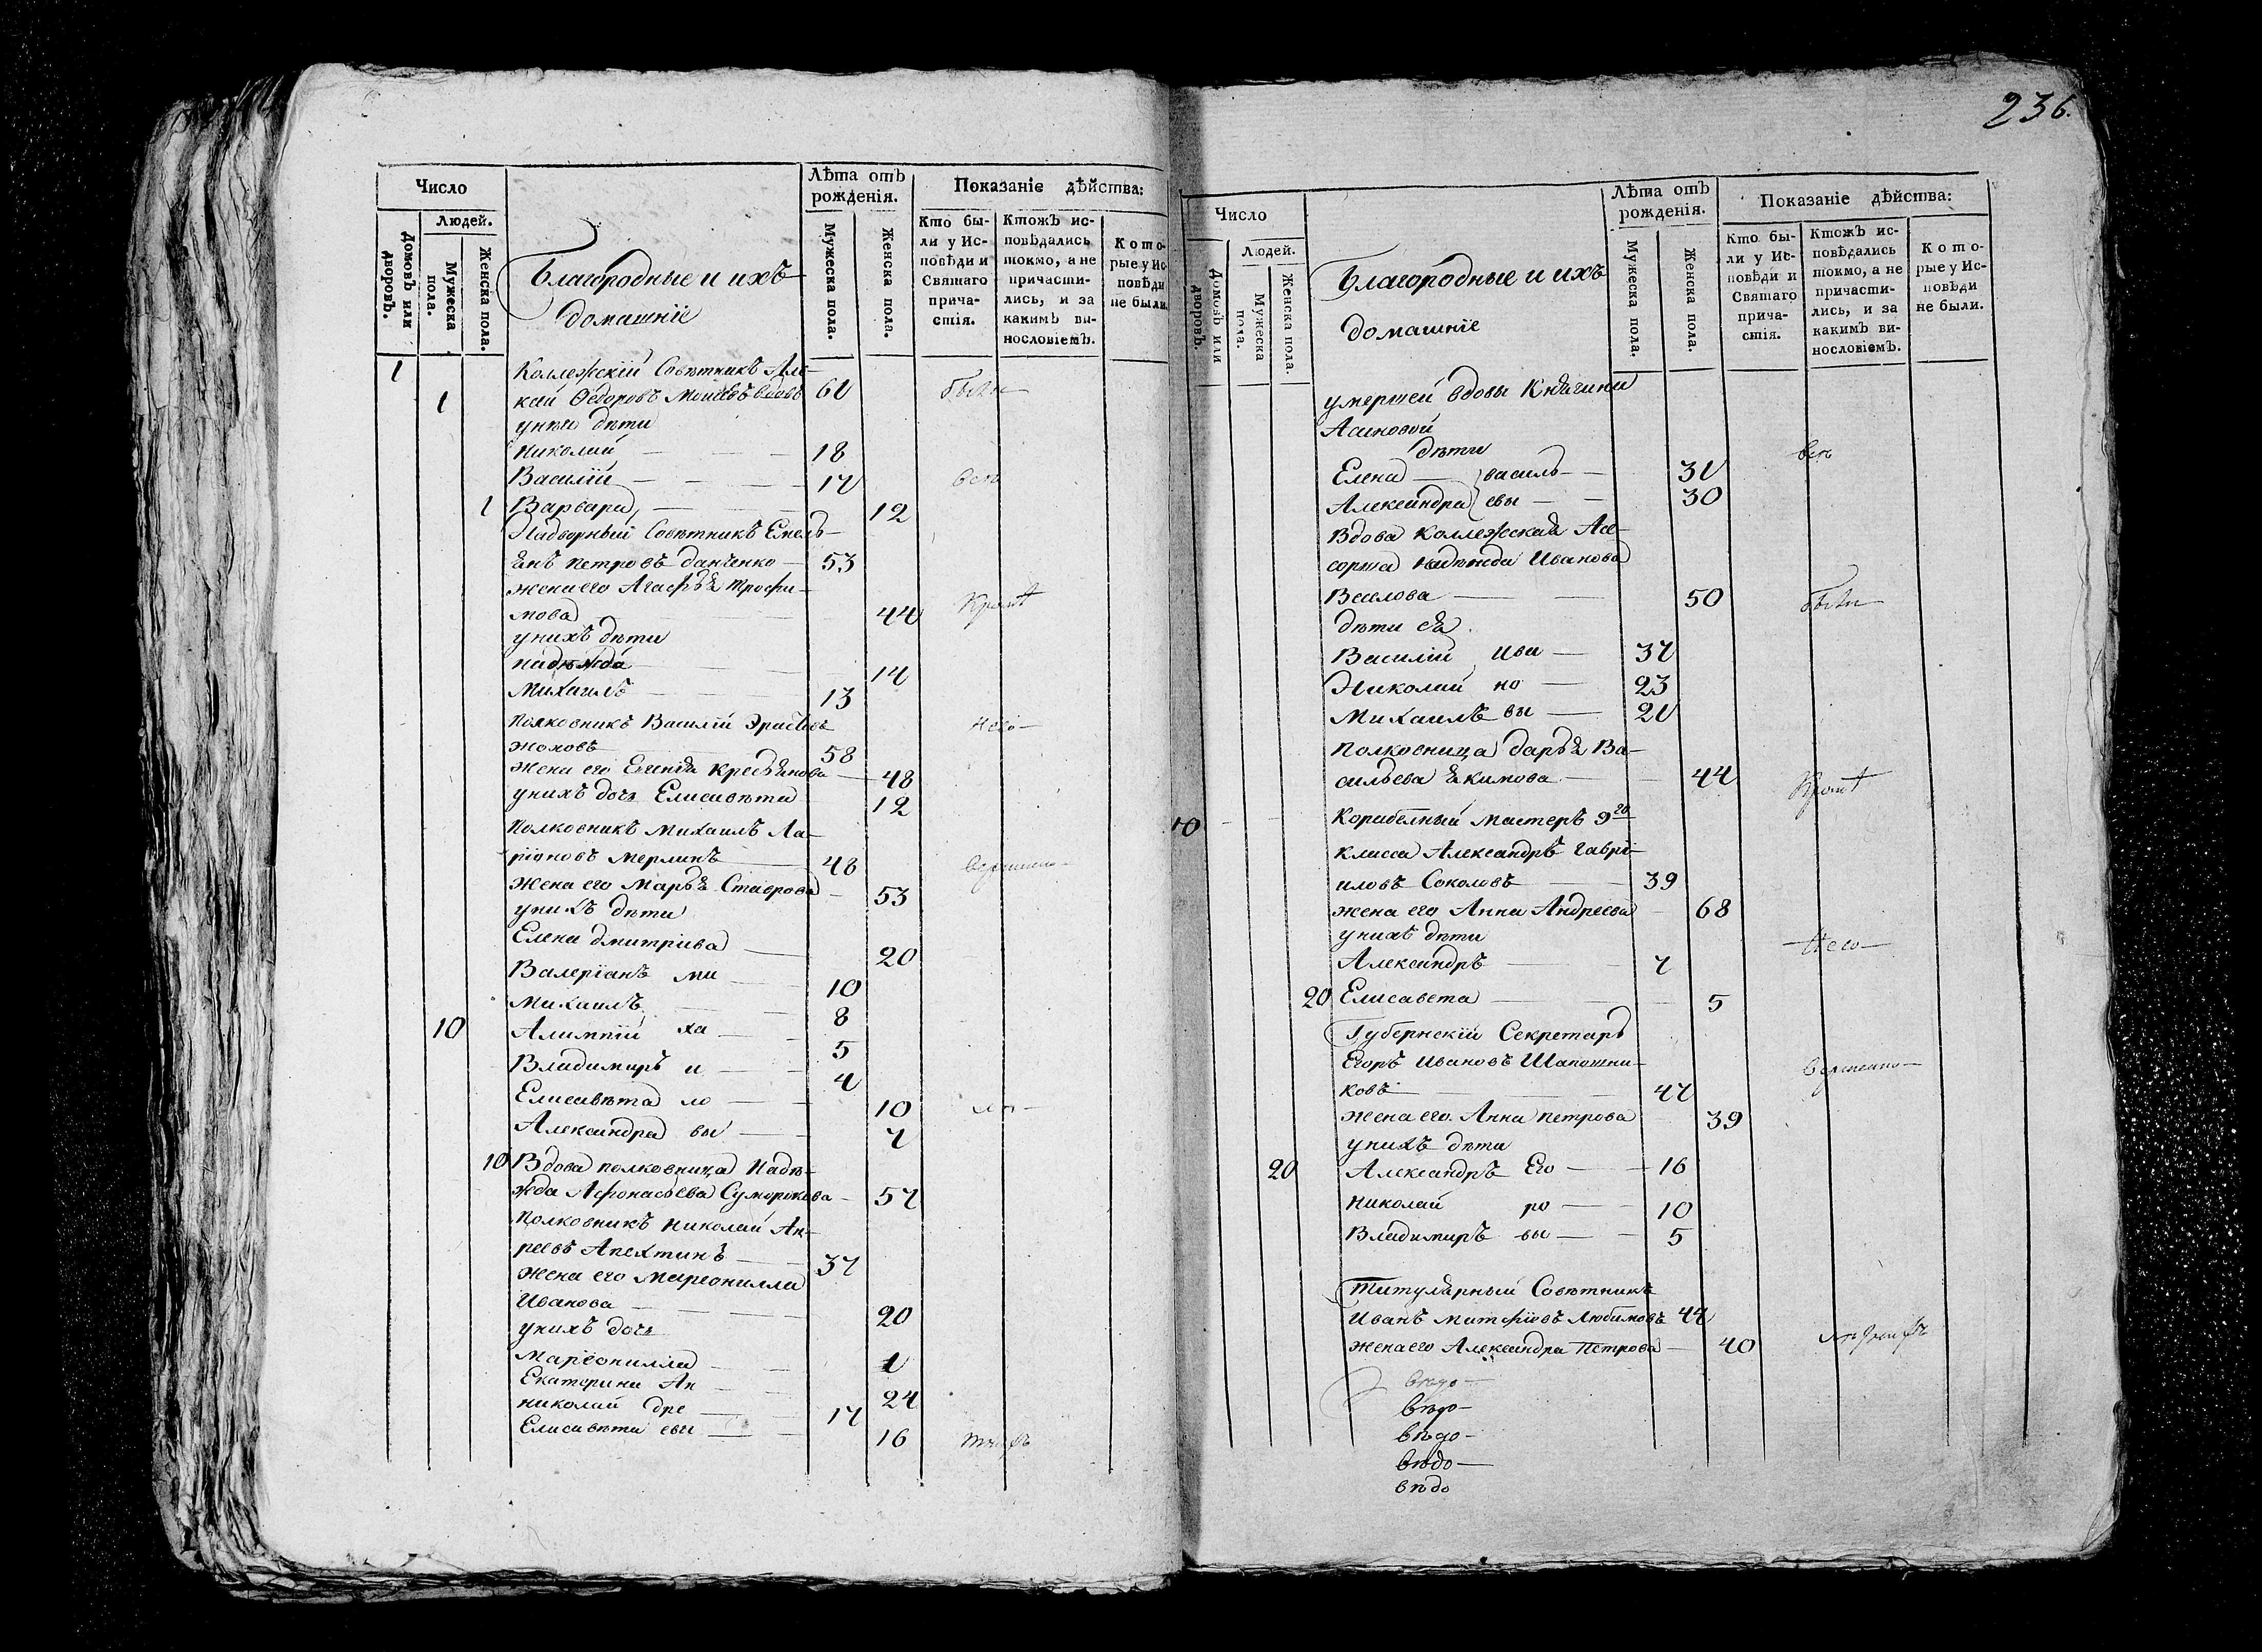 236.
Число
Людей.
Домовъ или дворовъ.
Мужеска пола.
Женска пола.
Благородные и ихъ
домашніе
Лѣта отъ рожденія.
Мужеска пола.
Женска пола.
Показаніе дѣйства:
Кто бы-
ли у Ис-
повѣди и
Святаго
прича-
стія.
Ктожъ ис-
повѣдались
токмо, а не
причасти-
лись, и за
какимъ ви-
нословіемъ.
Кото-
рые у Ис-
повѣди
не были.
1
Коллежскій Совѣтникъ Але-
1 кѣй Ѳедоровъ вдовъ были
унего дѣти
Николай 18
Василій 17 всѣ
1 Варвара 12
Надворный Совѣтникъ Емель-
янъ Петровъ Данченко 53
жена его Агафья Трофи-
мова 44 Кромѣ
унихъ дѣти
надежда 14
Михаилъ 13
Полковникъ Василій
Жоховъ 58
жена его 48
унихъ дочь Елисавѣта 12
Полковникъ Михаилъ Ла-
ріоновъ Мерлинъ 48
Жена его Марья Ставрова 53
унихъ дѣти
Елена Дмитріева 20
Валеріанъ ми 10
Михаилъ 8
10 Алимпій ха 5
Владимиръ и 4
Елисавѣта ло 10
Александра вы 7
10 Вдова полковница Надѣ-
жда Афонасьева Суморокова 57
Полковникъ Николай Ан-
реевъ Апехтинъ 37
Жена его Маргонилла
Иванова 20
унихъ дочь
Маргонилла 1
Екатерина Ан 24
николай дре 17
Елисавѣта евы 16
Число
Людей.
Домовъ или дворовъ.
Мужеска пола.
Женска пола.
Благородные и ихъ
домашніе
Лѣта отъ рожденія.
Мужеска пола.
Женска пола.
Показаніе дѣйства:
Кто бы-
ли у Ис-
повѣди и
Святаго
прича-
стія.
Ктожъ ис-
повѣдались
токмо, а не
причасти-
лись, и за
какимъ ви-
нословіемъ.
Кото-
рые у Ис-
повѣди
не были.
умершей вдовы Княгини
Асановой
дѣти всѣ
Елена василь 31
Александра евы 30
Вдова Коллежская Асе-
сорша надежда Иванова
50 были
дѣти ея
Василій ива 37
Николай но 23
Михаилъ вы 21
Полковница дарья Ва-
сильева Якимова 44 Кромѣ
10 Корабелный Мастеръ 9го
класса Александръ Гаври-
иловъ Соколовъ 39
жена его Анна Андреева 68
унихъ дѣти
Александръ 7
20 Елисавета 5
Губернскій Секретарь
Егоръ Ивановъ Шапошни-
ковъ 47
Жена его Анна Петрова 39
унихъ дѣти
20 Александръ Его 16
Николай ро 10
Владимиръ вы 5
Титулярный Совѣтникъ
Иванъ Матфіевъ Любимовъ 44
жена его Александра Петрова 40
вѣдо
вѣдо
вѣдо
вѣдо
вѣдо